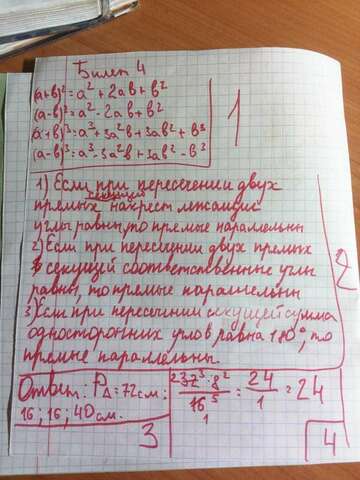 Билет 4
(а+в)²=а²+2ав+в²
(а-в)²=а²-2ав+в²
(а+в)³=а³+3а²в+3ав²+в³
(а-в)³=а³-3а²в+3ав²-в³
1
1) Если при пересечении двух
секущей
прямых накрест лежащие
углы равны, то прямые параллельны
2) Если при пересечении двух прямых
секущей соответственные углы
равны, то прямые параллельны
3) Если при пересечении секущей сумма
односторонних углов равна 180°, то
прямые параллельны.
2
Ответ: P△=72см;
16; 16; 40см.
3
= 24/1 = 24
4